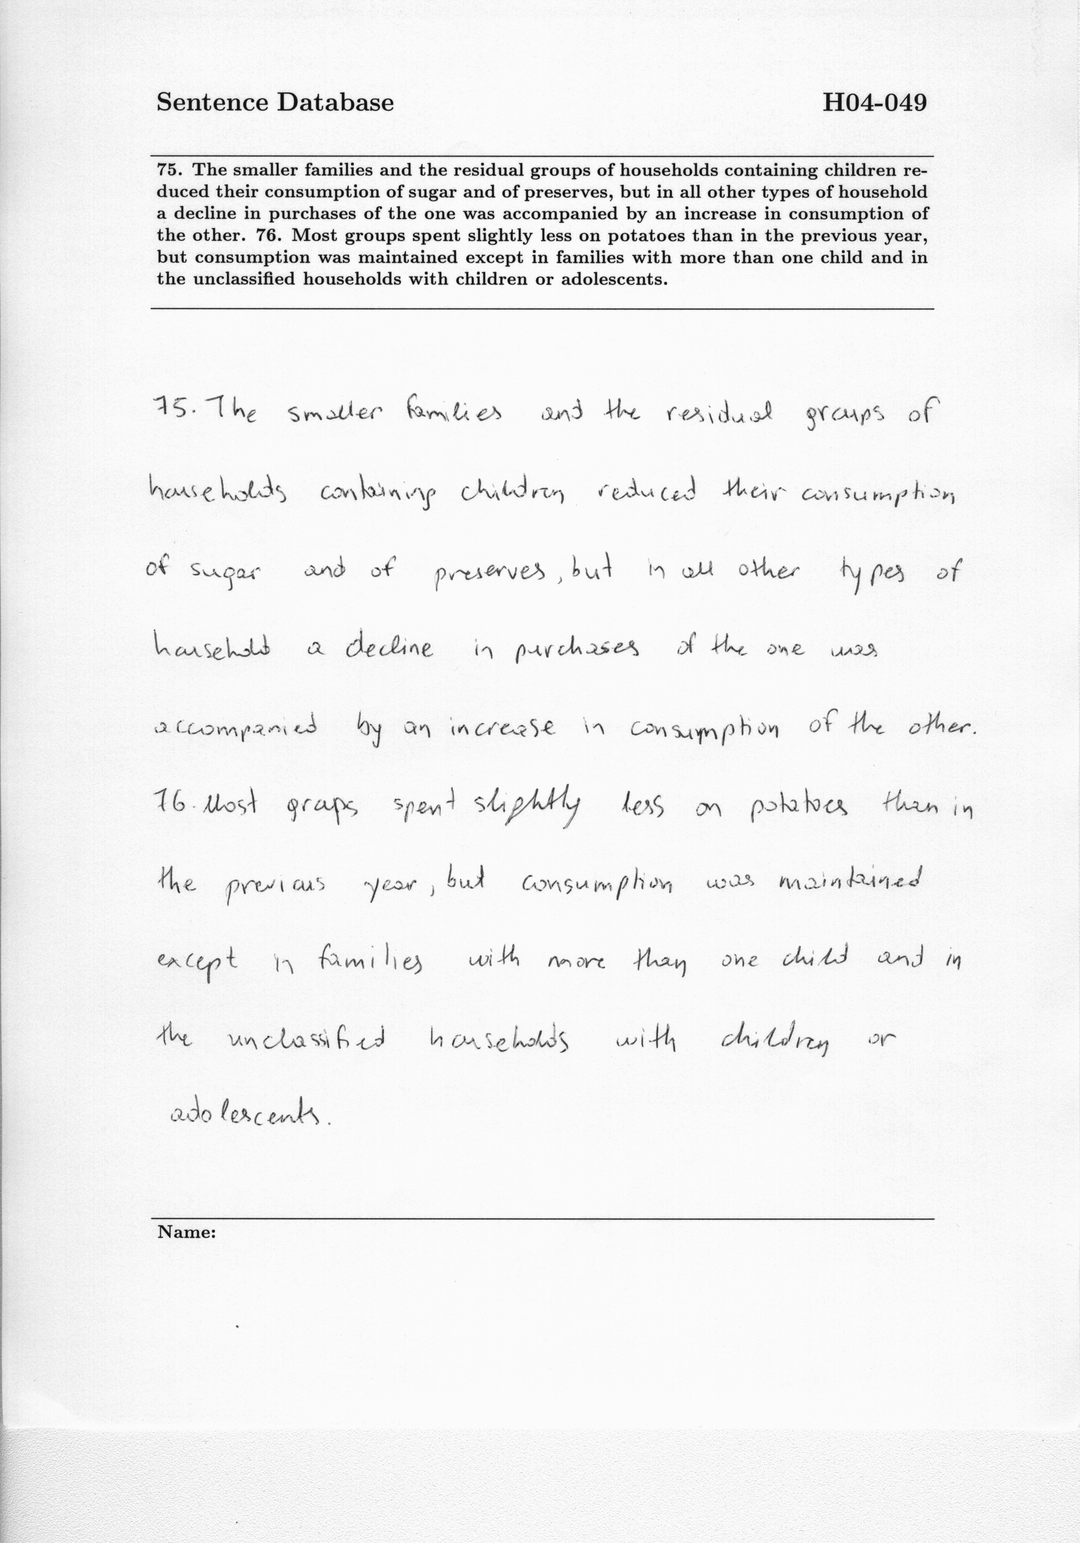 Sentence Database
H04-049
75. The smaller families and the residual groups of households containing children re-
duced their consumption of sugar and of preserves, but in all other types of household
a decline in purchases of the one was accompanied by an increase in consumption of
the other. 76. Most groups spent slightly less on potatoes than in the previous year,
but consumption was maintained except in families with more than one child and in
the unclassified households with children or adolescents.
75. The smaller families and the residual groups of
households containing children reduced their consumption
of sugar and of preserves, but in all other types of
household a decline in purchases of the one was
accompanied by an increase in consumption of the other.
76. Most groups spent slightly less on potatoes than in
the previous year, but consumption was maintained
except in families with more than one child and in
the unclassified households with children or
adolescents.
Name: